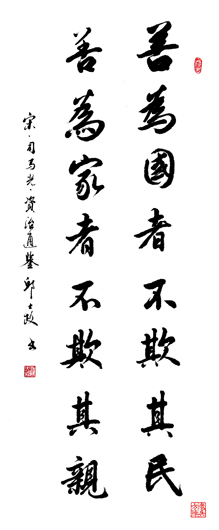 善為國者不欺其民
善為家者不欺其親
宋·司马光·資治通鑒 邱